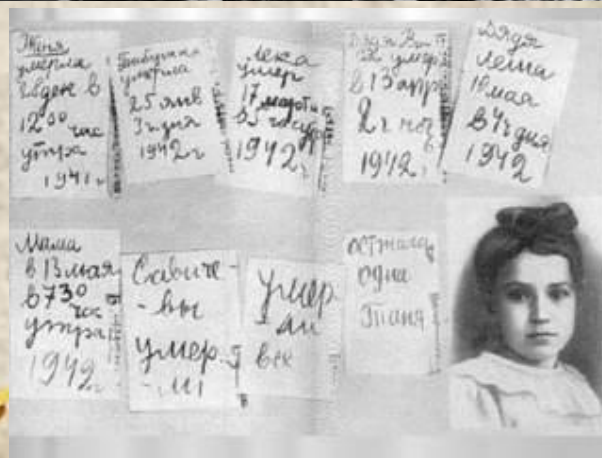 Женя
умерла
28 дек в
12 00 час
утра
1941 г
Бабушка
умерла
25 янв
3 ч дня
1942 г
Лека
умер
17 марта
в 5 час утр
1942 г
Дядя Вася
умер
в 13 апр
2 ч ноч
1942 г
Дядя
Леша
10 мая
в 4 ч дня
1942
Мама
в 13 мая
в 7 30
час
утра
1942 г
Савиче
-вы
умер
-ли
умер
ли
все
осталась
одна
Таня